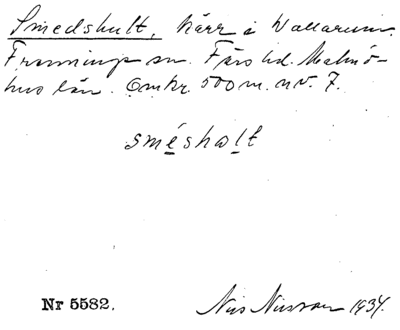 Smedshult, kärr i Vallarum.
Frenninge sn. Färs hd. Malmö-
hus län. Omkr. 500 m. nv. 7.
smésholt
Nr 5582.
Nils Nilsson 1934.